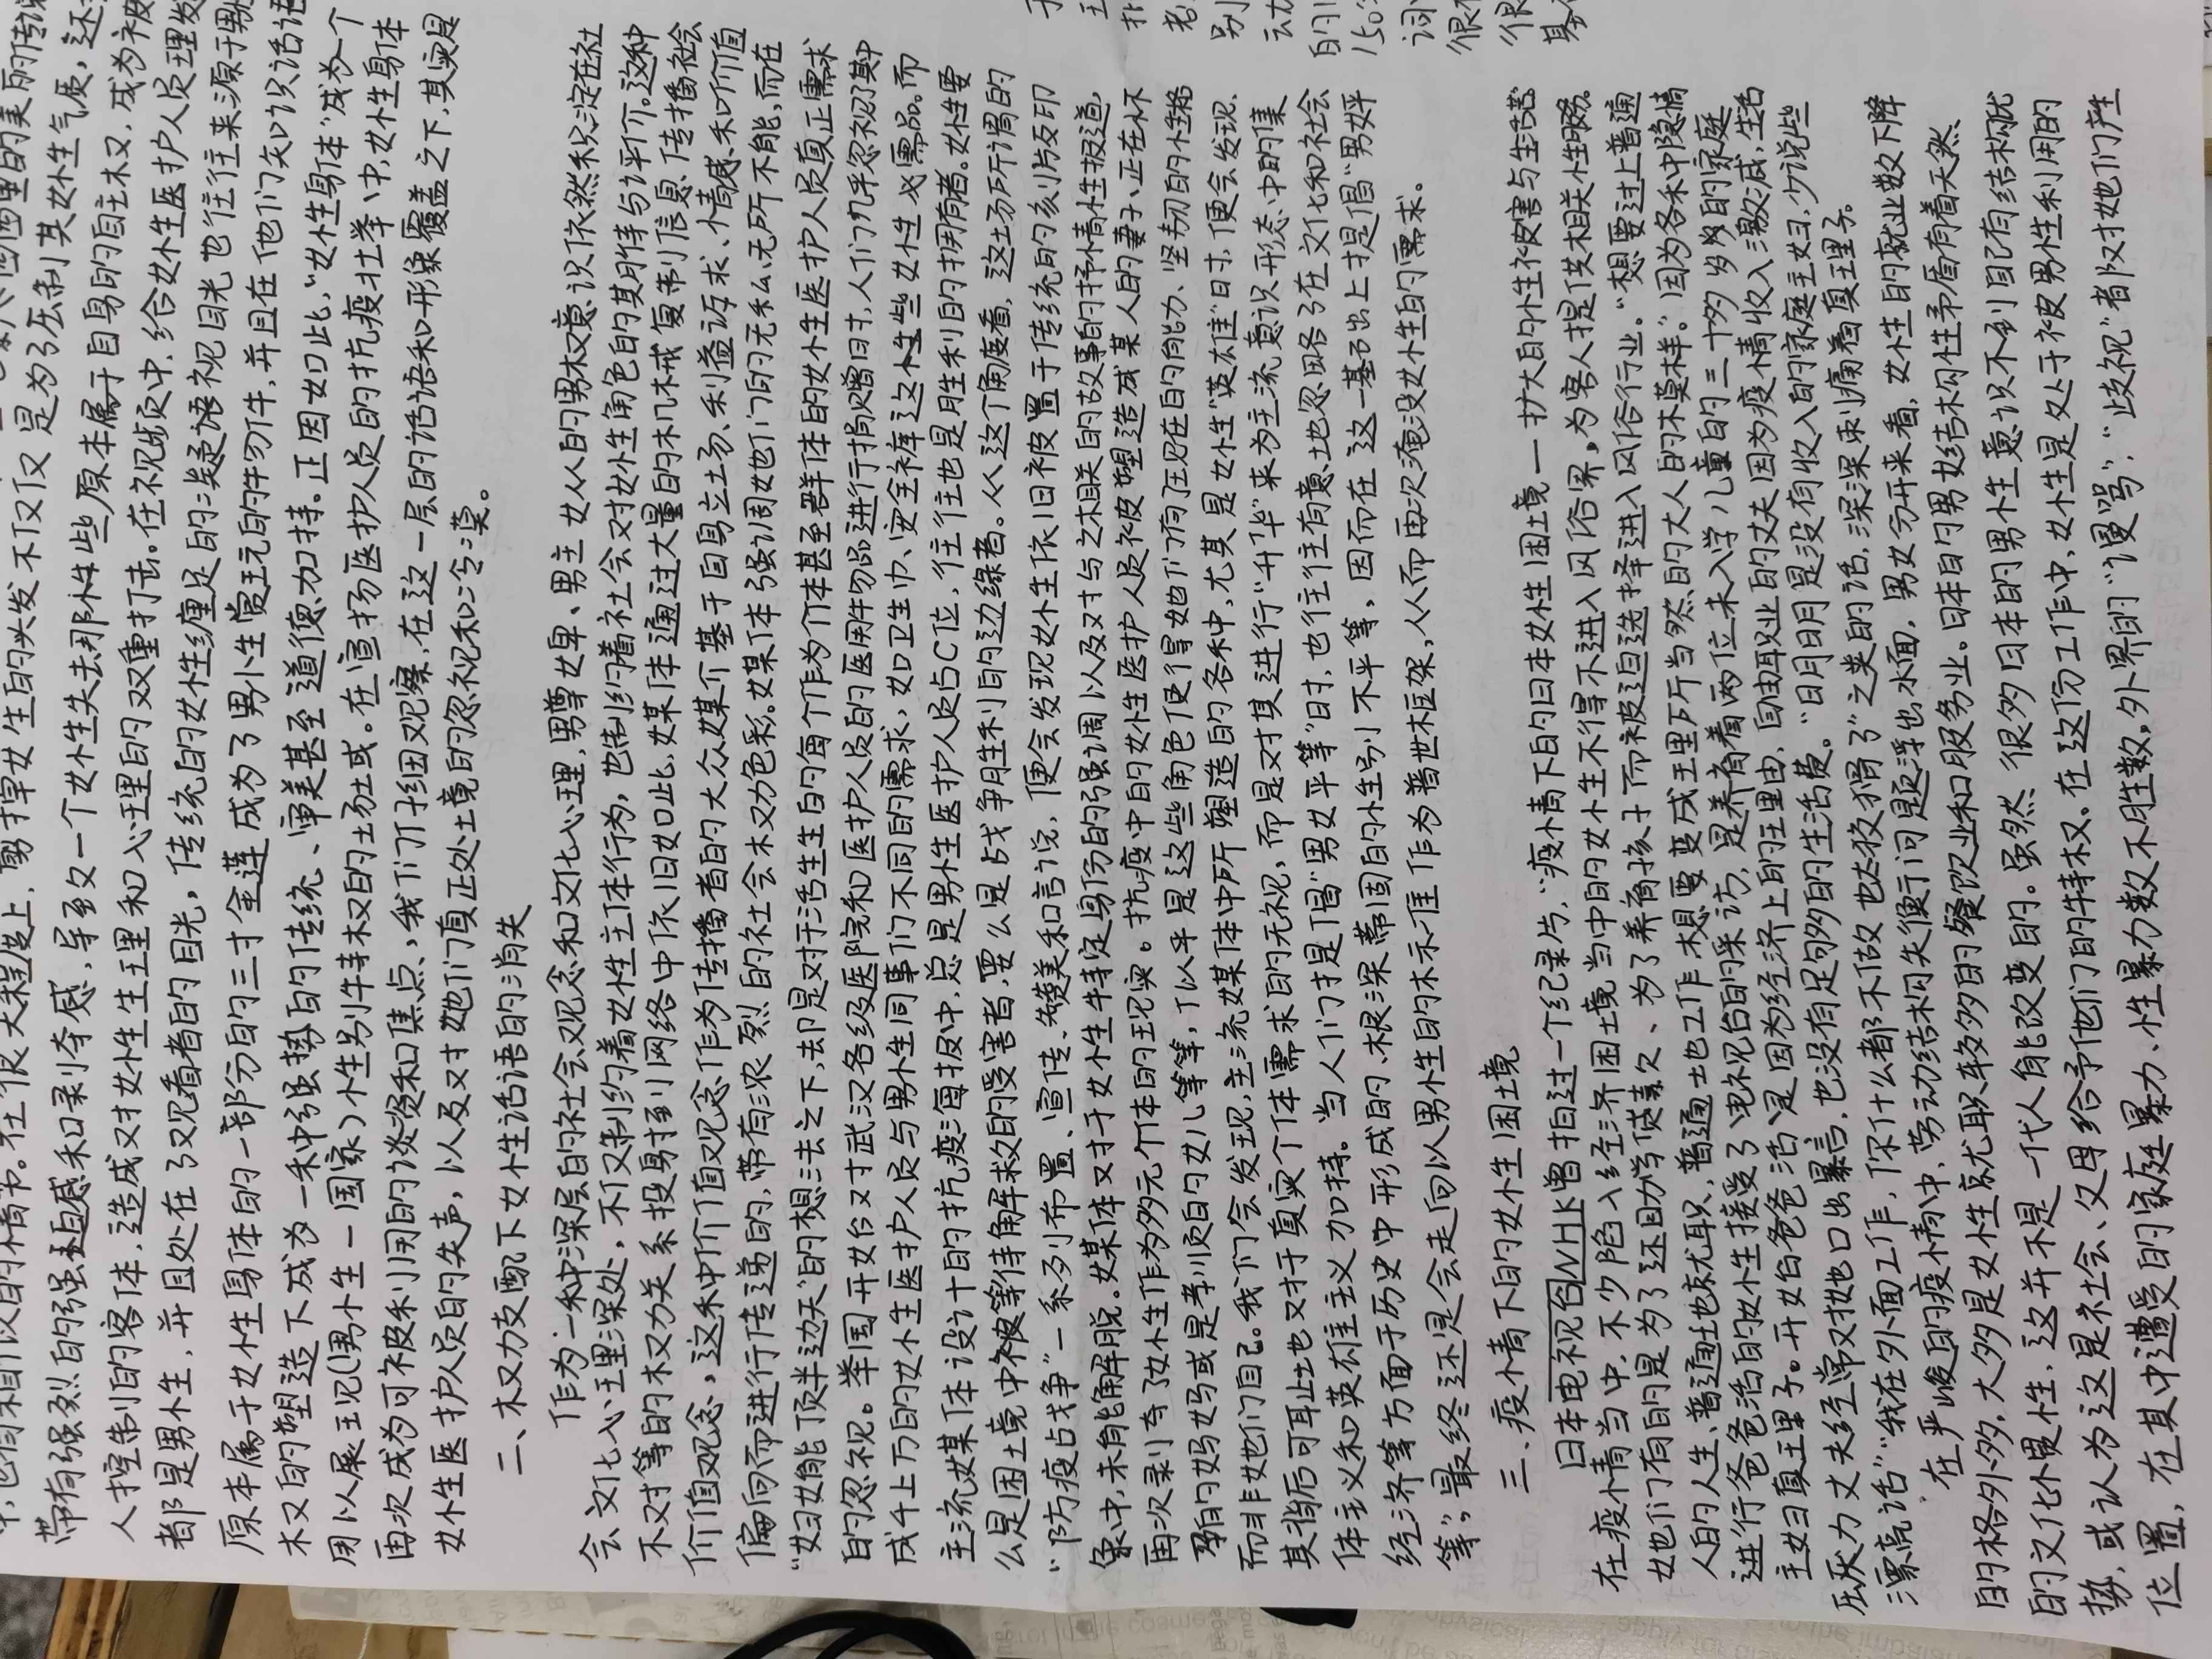 带有强烈的强迫感和剥夺感,导致一个女性失去那些原本属于自身的自主权,成为被
人控制的客体,造成对女性生理和心理的双重打击。在视频中,给女性医护人员理发
都是男性,并且处在了观看者的目光,传统的女性缠足的凝视目光也往往来源于男
原本属于女性身体的一部分的三寸金莲成为了男性赏玩的物件,并且在他们知识话语
权的塑造下成为一种强势的传统、审美甚至道德加持。正因如此,“女性身体”成为一个
用以展现(男性—国家)性别特权的场域。在宣扬医护人员的抗疫壮举中,女性身体
再次成为可被利用的谈资和焦点,我们仔细观察,在这一层的话语和形象覆盖之下,其实是
女性医护人员的失声,以及对她们真正处境的忽视和冷漠。
二、权力支配下女性话语的消失
作为一种深层的社会观念和文化心理,男尊女卑、男主女从的男权意识依然积淀在社
会文化心理深处,不仅制约着女性主体行为,也制约着社会对女性角色的期待与评价。这种
不对等的权力关系投身到网络中依旧如此,媒体通过大量的机械复制信息,传播社会
价值观念,这种价值观念作为传播者的大众媒介基于自身立场、利益诉求、情感和价值
偏向而进行传递的,带有浓烈的社会权力色彩。媒体强调她们的无私、无所不能,而在
“妇女能顶半边天”的想法之下,却是对于活生生的每个作为个体甚至群体的女性医护人员真正需求
的忽视。举国开始对武汉各级医院和医护人员的医用物品进行捐赠时,人们几乎忽视了其中
成千上万的女性医护人员与男性同事们不同的需求,如卫生巾、安全裤这些女性必需品。而
主流媒体设计的抗疫海报中,总是男性医护人员占C位,往往也是胜利的拥有者。女性要
么是困境中被等待解救的受害者,要么是战争胜利的边缘者。从这个角度看,这场所谓的
“防疫战争”一系列布置、宣传、赞美和言说,便会发现女性依旧被置于传统的刻板印
象中,未能解脱。媒体对于女性特定身份的强调以及对与之相关的故事的抒情性报道,
再次剥夺了女性作为多元个体的现实。抗疫中的女性医护人员被塑造成某人的妻子、正在怀
孕的妈妈或是孝顺的女儿等等,似乎是这些角色使得她们有现在的能力、坚韧的性格
而非她们自己。我们会发现,主流媒体中所塑造的各种,尤其是女性“英雄”时,便会发现,
其背后可耻地对于真实个体需求的无视,而是对其进行“升华”来为主流意识形态中的集
体主义和英雄主义加持。当人们提倡“男女平等”时,也往往有意地忽略了在文化和社会
经济等方面于历史中形成的、根深蒂固的性别不平等,因而在这一基础上提倡“男女平
等”,最终还是会走向以男性的标准作为普世框架,从而再次淹没女性的需求。
三、疫情下的女性困境
日本电视台NHK曾拍过一个纪录片,“疫情下的日本女性困境—扩大的性被害与生活苦”
在疫情当中,不少陷入经济困境当中的女性不得不进入风俗界,为客人提供相关性服务。
女她们有的是为了还助学贷款、为了养育孩子而被迫选择进入风俗行业。“想要过上普通
人的人生、普通地就职、普通地工作,想要变成理所当然的大人的模样。”因为各种隐情
进行爸爸活的女性接受了电视台的采访,是养育着两位未入学儿童的三十多岁的家庭
主妇真理子。开始爸爸活是因为经济上的理由,自由职业的丈夫因为疫情收入激减,生活
压力丈夫经常对她口出暴言,也没有足够的生活费。“明明是没有收入的家庭主妇,少说些
漂亮话”“我在外面工作,你什么都不做也太狡猾了”之类的话,深深刺痛着真理子。
在严峻的疫情中,劳动结构失衡问题浮出水面,男女分开来看,女性的就业数下降
的格外多,大多是女性就职较多的餐饮业和服务业。日本的男女结构性矛盾有着天然
的文化惯性,这并不是一代人能改变的。虽然很多日本的男性意识不到自己有结构优
势,或认为这是社会、父母给予他们的特权,在这份工作中,女性是处于被男性利用的
位置,在其中遭受的家庭暴力、性暴力数不胜数,外界的“谩骂”,“歧视”都对她们产生